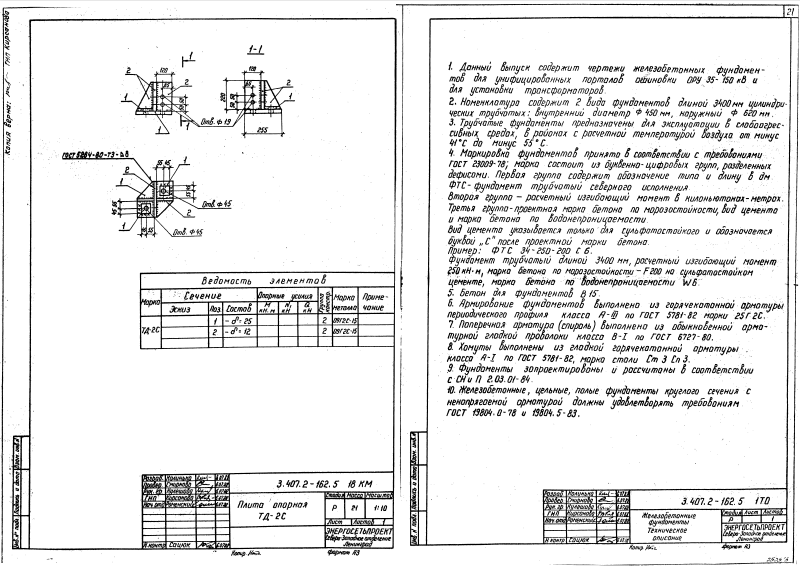 Копия верна:
1-1
120
2
1
Отв. Ф 19
255
ГОСТ 5264-80-Т3-
Отв. Ф45
Отв. Ф45
Ведомость элементов
Марка
Сечение
Опорные усилия
Группа констр.
Марка металла
Приме-чание
Эскиз
Поз.
Состав
М кН.м
N, кН
Q кН
ТД-2С
1 – δ= 25 2 09Г2С-15
2 – δ= 12 2 09Г2С-15
3.407.2-162.5 18 КМ
Плита опорная
ТД-2С
Стадия Масса Масштаб
Р 21 1:10
Лист Листов 1
ЭНЕРГОСЕТЬПРОЕКТ
Северо-Западное отделение
Ленинград
Н контр. Сацюк
Формат А3
21
1. Данный выпуск содержит чертежи железобетонных фундамен-
тов для унифицированных порталов ошиновки ОРУ 35-150 кВ и
для установки трансформаторов.
2. Номенклатура содержит 2 вида фундаментов длиной 3400 мм цилиндри-
ческих трубчатых: внутренний диаметр Ф 450 мм, наружный Ф 620 мм.
3. Трубчатые фундаменты предназначены для эксплуатации в слабоагрес-
сивных средах, в районах с расчетной температурой воздуха от минус
41°С до минус 55°С.
4. Маркировка фундаментов принята в соответствии с требованиями
ГОСТ 23009-78; марка состоит из буквенно-цифровых групп, разделенных
дефисами. Первая группа содержит обозначение типа и длину в дм
ФТС-фундамент трубчатый северного исполнения.
Вторая группа – расчетный изгибающий момент в килоньютонах-метрах.
Третья группа-проектная марка бетона по морозостойкости, вид цемента
и марка бетона по водонепроницаемости.
Вид цемента указывается только для сульфатостойкого и обозначается
буквой „С" после проектной марки бетона.
Пример: ФТС 34-250-200 С 6.
Фундамент трубчатый длиной 3400 мм, расчетный изгибающий момент
250 кН·м, марка бетона по морозостойкости – F200 на сульфатостойком
цементе, марка бетона по водонепроницаемости W6.
5. Бетон для фундаментов В 15.
6. Армирование фундаментов выполнена из горячекатанной арматуры
периодического профиля класса А-III по ГОСТ 5781-82 марки 25Г2С.
7. Поперечная арматура (спираль) выполнена из обыкновенной арма-
турной гладкой проволоки класса В-I по ГОСТ 6727-80.
8. Хомуты выполнены из гладкой горячекатанной арматуры
класса А-I по ГОСТ 5781-82, марка стали Ст 3 Сп 3.
9. Фундаменты запроектированы и рассчитаны в соответствии
с СНиП 2.03.01-84.
10. Железобетонные, цельные, полые фундаменты круглого сечения с
ненапрягаемой арматурой должны удовлетворять требованиям
ГОСТ 19804.0-78 и 19804.5-83.
3.407.2-162.5 1ТО
Железобетонные
фундаменты
Техническое
описание
Стадия Лист Листов
Р
ЭНЕРГОСЕТЬПРОЕКТ
Северо-Западное отделение
Ленинград
Н контр Сацюк
Формат А3